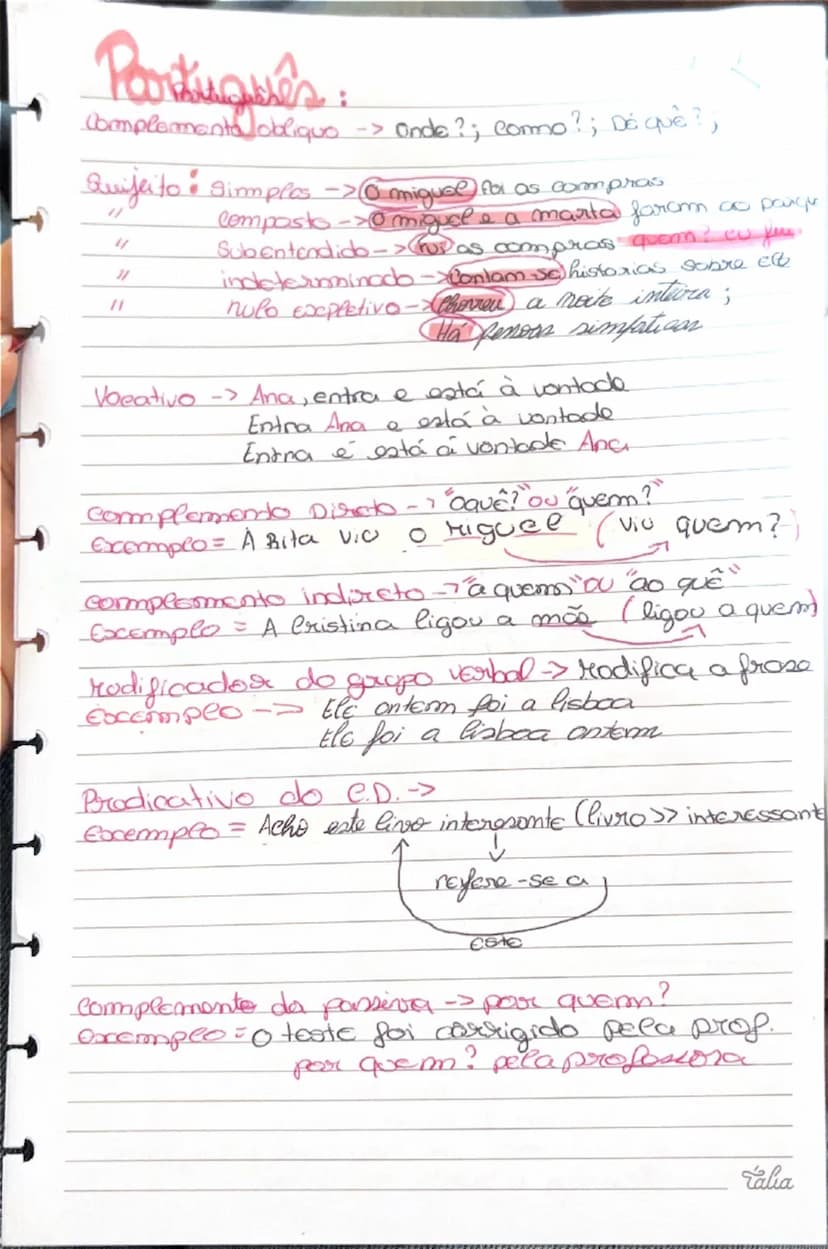 Português:
Português
Complemento oblíquo -> Onde?; Como?; De quê?;
Sujeito: Simples -> O miguel foi as compras
" composto -> O miguel e a marta foram ao parque
" Subentendido -> Fui as compras quem? eu fui
" indeterminado -> Contam-se historias sobre ele
" nulo expletivo -> Choveu a noite inteira;
Há pessoas simpaticas
Vocativo -> Ana, entra e está à vontade
Entra Ana e está à vontade
Entra e está á vontade Ana
Complemento Direto -> "oquê?" ou "quem?"
Exemplo = A Rita viu o Miguel (viu quem?)
complemento indireto -> "a quem" ou "ao quê"
Exemplo = A Cristina ligou a mãe (ligou a quem)
Modificador do grupo verbal -> Modifica a frase
Exemplo -> Ele ontem foi a lisboa
Ele foi a lisboa ontem
Predicativo do C.D. ->
Exemplo = Acho este livro interesante (livro >> interessant
refere-se a
este
Complemento da passiva -> por quem?
exemplo = O teste foi corrigido pela prof.
por quem? pela professora
Tália